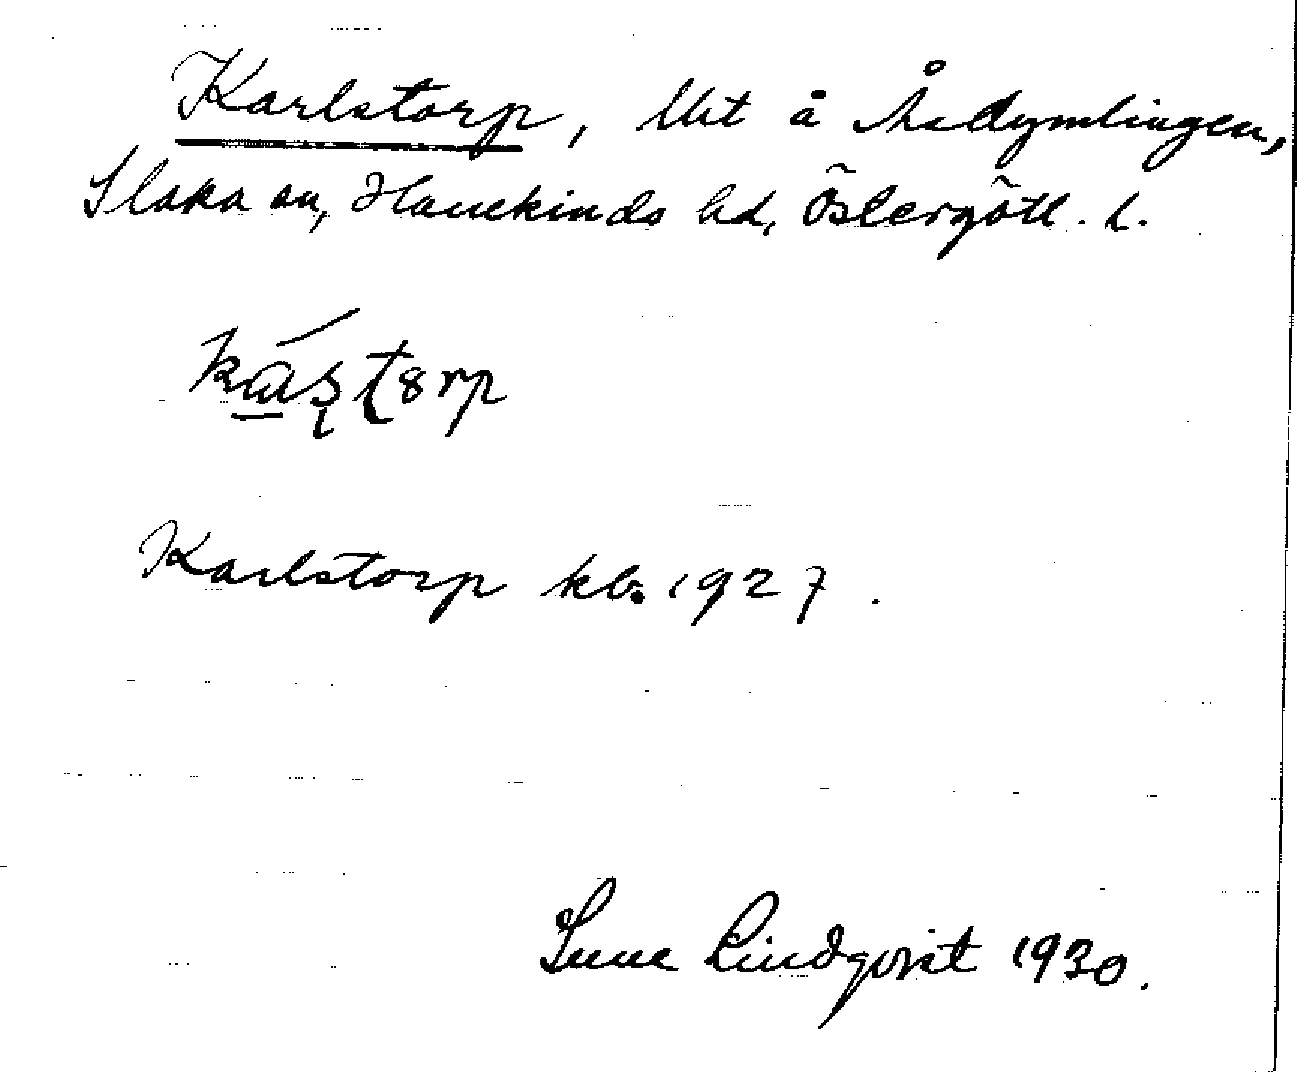 Karlstorp, lht å Åsdymlingen,
Slaka sn, Hanekinds hd, Östergötl. l.
Karlstorp kb. 1927.
Sune Lindqvist 1930.